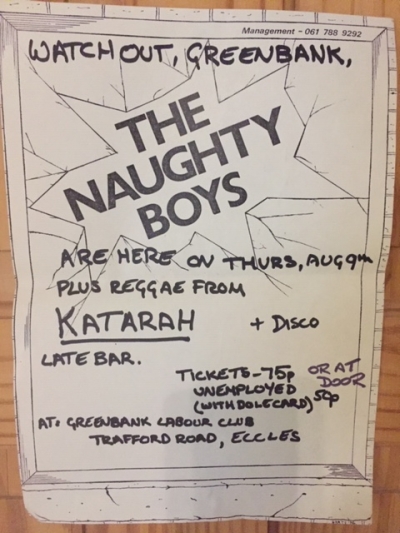 Management - 061 788 9292
WATCH OUT, GREENBANK,
THE
NAUGHTY
BOYS
ARE HERE ON THURS, AUG 9TH
PLUS REGGAE FROM
KATARAH + DISCO
LATE BAR.
TICKETS - 75p OR AT DOOR
UNEMPLOYED
(WITH DOLECARD) 50p
AT: GREENBANK LABOUR CLUB
TRAFFORD ROAD, ECCLES